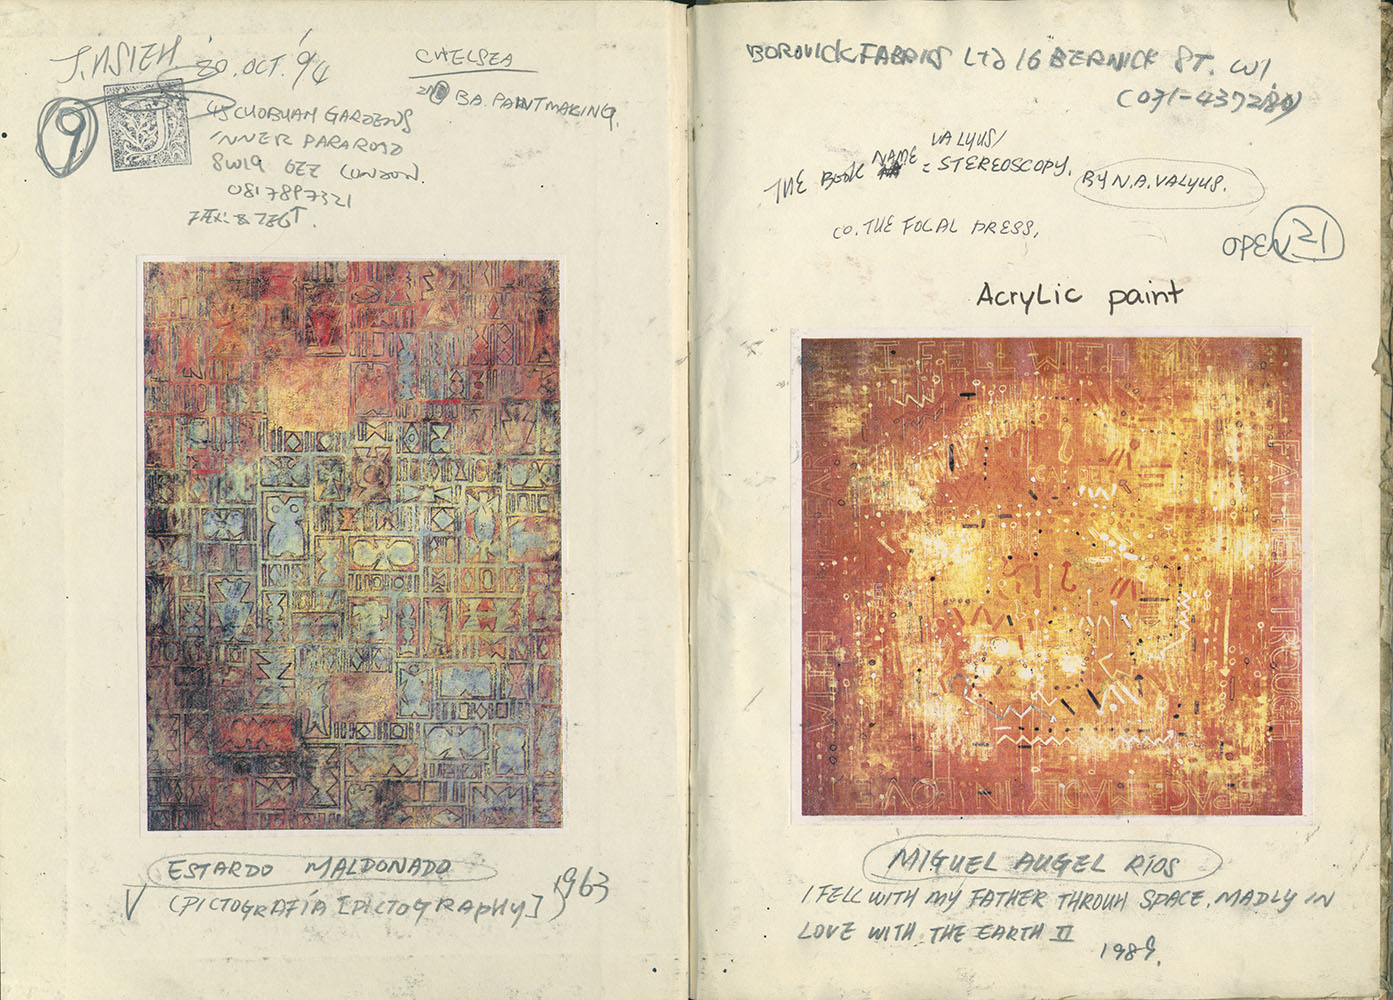 J. HSIEH 30. OCT. '94
9
45 CHOBHAM GARDENS
INNER PARK ROAD
SW19 6EZ LONDON.
081 7897321
CHELSEA
2ND BA. PAINTMAKING.
ESTARDO MALDONADO
V [PICTOGRAFÍA [PICTOGRAPHY] 1963
BOROVICK FABRICS LTD 16 BERNICK ST. W1
(071-437 2180)
THE BOOK NAME = VALYUS/ STEREOSCOPY. BY N.A. VALYUS.
CO. THE FOCAL PRESS.
OPEN 21
Acrylic paint
I FELL WITH MY
FATHER TROUGH
SPACE MADLY IN LOVE
WITH
MIGUEL AUGEL RÍOS
I FELL WITH MY FATHER THROUH SPACE, MADLY IN
LOVE WITH THE EARTH II
1989.